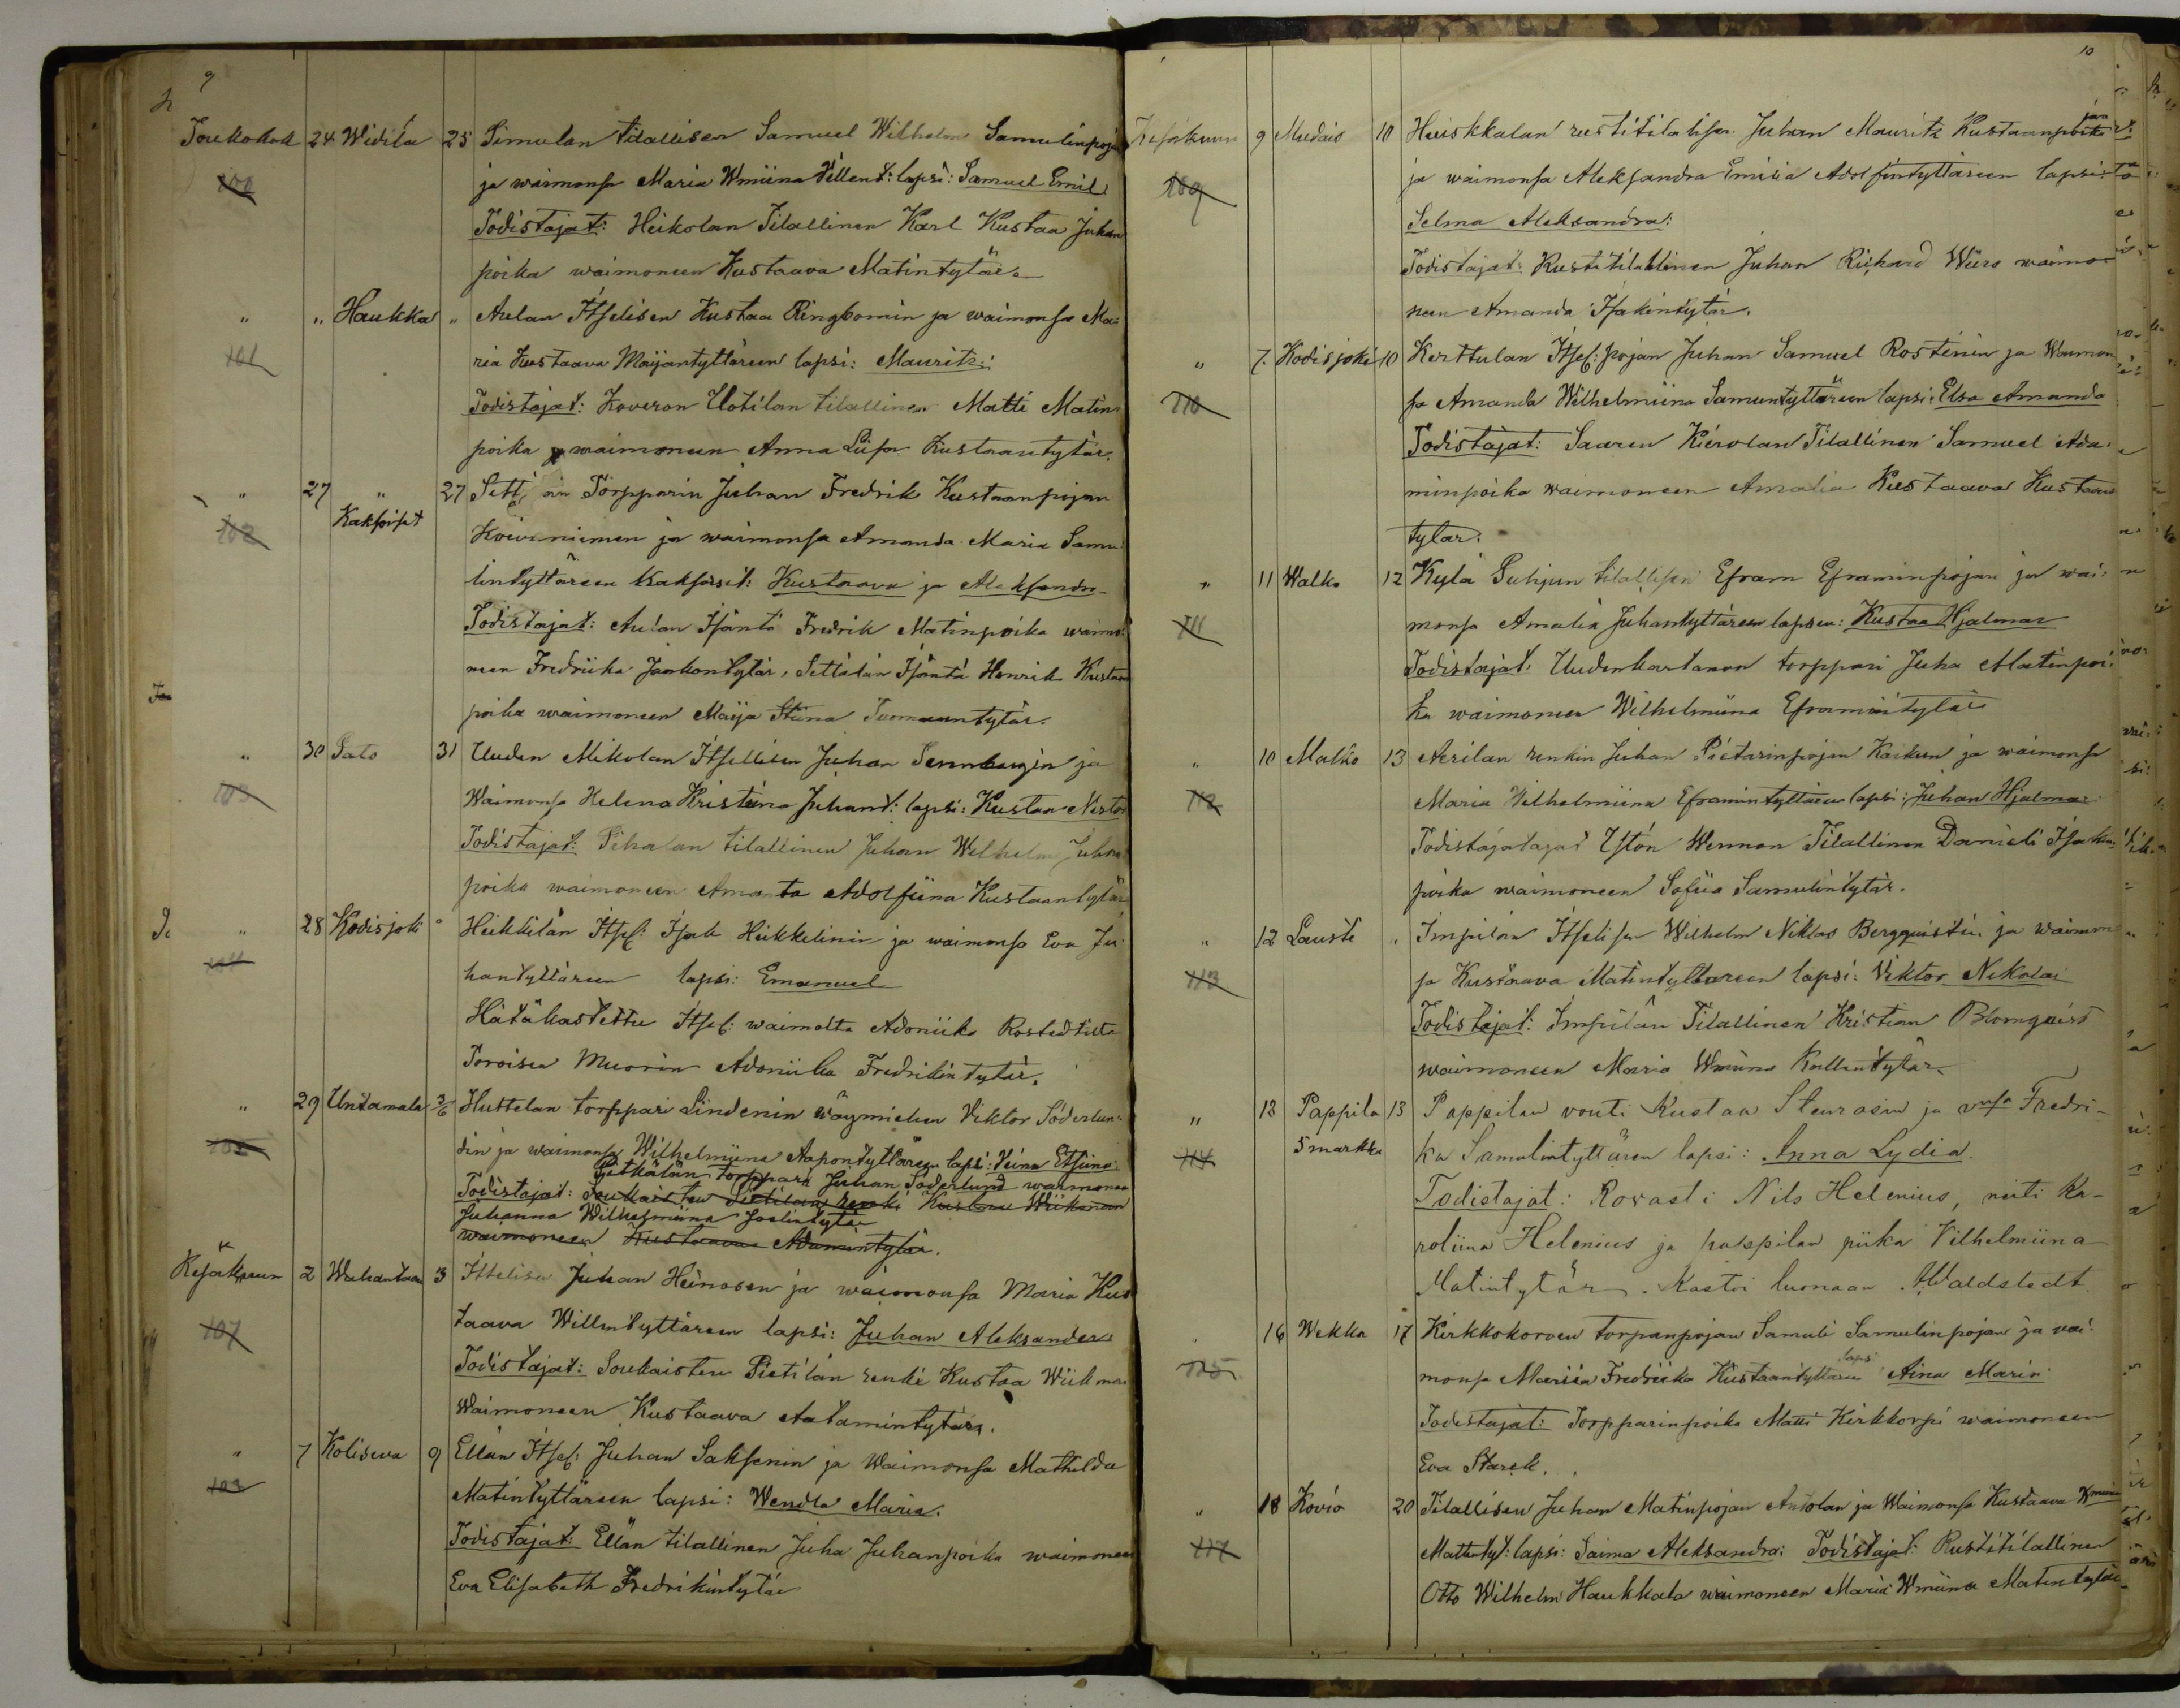 9
Toukokuu 24 Widila 25 Simulan tilallisen Samuel Wilhelm Samulinpojan
100 ja waimonsa Maria Wmiina Villent: lapsi: Samuel Emil
Todistajat: Heikolan Tilallinen Karl Kustaa Juhan
poika waimoneen Kustaava Matintytär
" " Haukka " Aulan Itselisen Kustaa Ringbomin ja waimonsa Ma=
101 ria Kustaava Maijantyttäreen lapsi: Maurits:
Todistajat: Koveron Uotilan tilallinen Matti Matin
poika waimoneen Anna Liisa Kustaantytär.
" 27 " 27 Torpparin Juhan Fredrik Kustaanpojan
102 Kaksoiset Koivuniemen ja waimonsa Amanda Maria Samu
lintyttäreen Kaksoiset: Kustaava ja Aleksandra
Todistajat: Aulan Isäntä Fredrik Matinpoika waimo
neen Fredriika Jaakontytär, Settälän Isäntä Henrik Kustaan
poika waimoneen Maija Stiina Tuomauntytär.
" 30 Salo 31 Uuden Mikolan Itsellisen Juhan Sennbergin ja
103 Waimonsa Helena Kristiina Juhant: lapsi: Kustaa Nestor
Todistajat: Pihalan tilallinen Juhan Wilhelm Juhan
poika waimoneen Amanta Adolfiina Kustaantytär
" 28 Kodisjoki " Heikkilän Itsel: Isak Heikkelinin ja waimonsa Eva Ju
104 hantyttäreen lapsi: Emanuel
Hätäkastettu Itsel: waimolta Adoniika Rostedtilta
Toroisen Muorin Adoniika Fredrikintytär.
" 29 Untamala 3/6 Huttelan torppari Lindenin wäymiehen Viktor Söderlun
105 din ja waimonsa Wilhelmiina Aapontyttäreen lapsi: Veina Etsiina
Pitkälän torppari Juhan Söderlund waimoneen
Todistajat: Soukaisten Pietilän renki Kustaa Wiikman
Juhanna Wilhelmiina Joelintytär
waimoneen Kustaava Adamintytär.
Kesäkuun 2 Wahantaa 3 Itselisen Juhan Heinosen ja waimonsa Maria Kus
107 taava Willintyttäreen lapsi: Juhan Aleksander
Todistajat: Soukaisten Pietilän renki Kustaa Wiikman
Waimoneen Kustaava Aatamintytär.
" 7 Kolisewa 9 Ellän Itsel: Juhan Saksenin ja Waimonsa Mathilda
108 Matintyttäreen lapsi: Wendla Maria.
Todistajat: Ellän tilallinen Juha Juhanpoika waimoneen
Eva Elisabeth Fredrikintytär
10
Kesäkuun 9 Mudais 10 Heiskkalan rustitilalisen Juhan Maurits Kustaanpoika
109 ja waimonsa Aleksandra Emilia Adolfintyttäreen lapsi:
Selma Aleksandra:
Todistajat: Rustitilallinen Juhan Rickard Wiiro waimo
neen Amanda Isakintytär.
" 7. Kodisjoki 10 Kerttulan Itsel: pojan Juhan Samuel Rostenin ja Waimon
110 sa Amanda Wilhelmiina Samuntyttäreen lapsi: Elsa Amanda
Todistajat: Saaren Kierolan Tilallinen Samuel Ada
minpoika waimoneen Amalia Kustaava Kustaan
tytar.
" 11 Walko 12 Kylä tilallisen Efram Eframinpojan ja wai:
111 monsa Amalia Juhantyttäreen lapsen: Kustaa Hjalmar
Todistajat: Uudenkartanon torppari Juha Matinpoi
ka waimoneen Wilhelmiina Eframintytär
" 10 Malko 13 Aerilan renkin Juhan Pietarinpojan Kaikun ja waimonsa
112 Maria Wilhelmiina Eframintyttäreen lapsi: Juhan Hjalmar
Wennon Tilallinen Danieli Isakin
poika waimoneen Sofiia Samulintytär.
" 12 Lausti " Impilän Itselisen Wilhelm Niklas Bergquistin ja waimon
113 sa Kustaava Matintyttäreen lapsi: Viktor Nikolai
Todistajat: Impilän Tilallinen Kristian Blomqvist
waimoneen Maria Wmiina Kallentytär.
" 13 Pappila 13 Pappilan vouti Kustaa Stenrosin ja vmsa Fredri-
114 5 markka ka Samulintyttären lapsi: Anna Lydia.
Todistajat: Rovasti Nils Helenius, neiti Ka-
roliina Helenius ja pappilan piika Vilhelmiina
Matintytär. Kastoi luonaan AWaldstedt.
16 Wekka 17 Kirkkokorven torpanpojan Samuli Samulinpojan ja vai-
115 monsa Mariia Fredriika Kustaantyttären lapsi Aina Maria
Todistajat: Torpparinpoika Matti Kirkkorpi waimoneen
Eva Starck.
" 18 Kovio 20 Tilallisen Juhan Matinpojan Antolan ja Waimonsa Kustaava Wmiina
117 Mattintyt: lapsi: Saima Aleksandra: Todistajat: Rustitilallinen
Otto Wilhelm Haukkala waimoneen Maria Wmiina Matintytär.